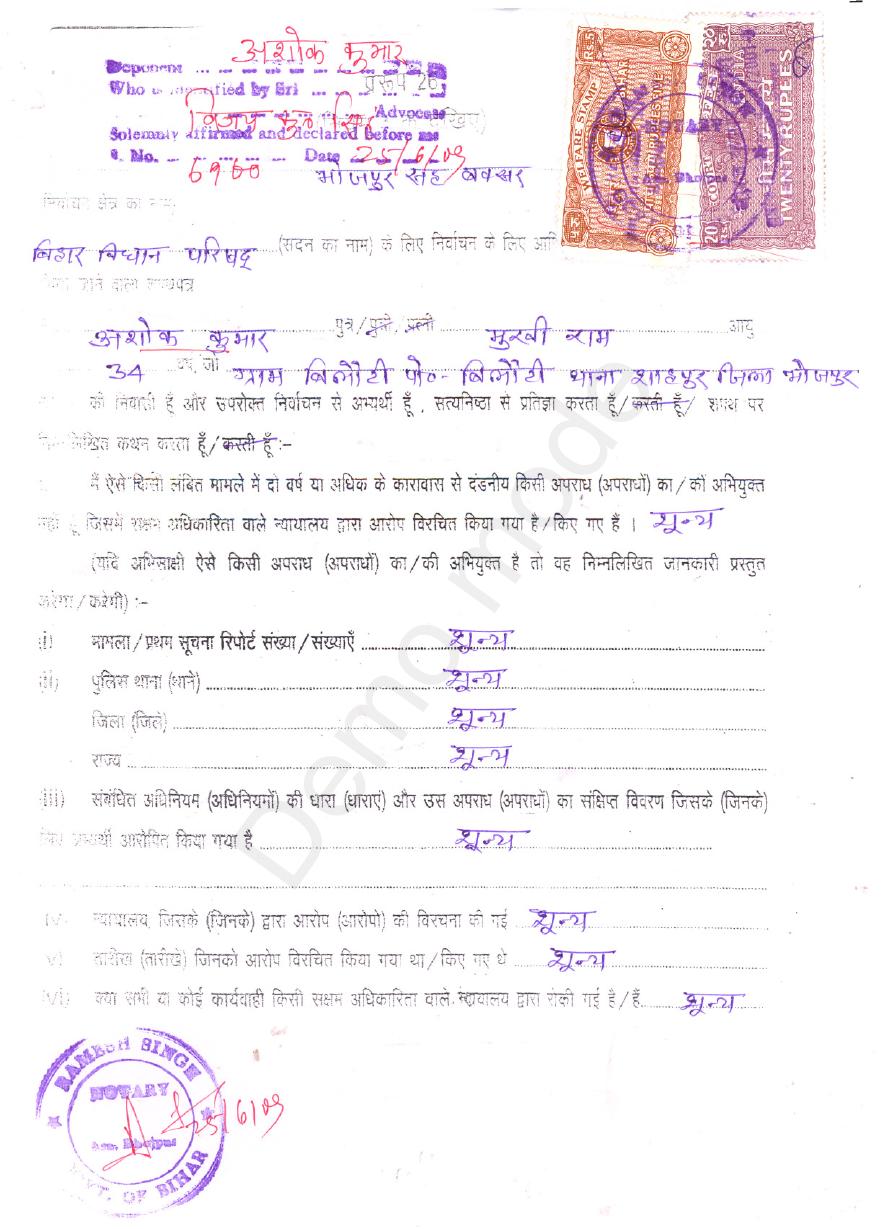 अशोक कुमार
Deponent
प्ररूप 26
Who is identified by Sri
Advocate
Solemnly affirmed and declared before me
S. No. 6900 Date 25/6/09
भोजपुर सह बक्सर
निर्वाचन क्षेत्र का नाम
बिहार विधान परिषद् (सदन का नाम) के लिए निर्वाचन के लिए
किया जाने वाला शपथपत्र
अशोक कुमार पुत्र/पुत्री/पत्नी मुखी राम आयु
34 वर्ष, जो ग्राम बिलौटी पो०- बिलौटी थाना शाहपुर जिला भोजपुर
का निवासी हूँ और उपरोक्त निर्वाचन से अभ्यर्थी हूँ, सत्यनिष्ठा से प्रतिज्ञा करता हूँ/करती हूँ/ शपथ पर
निम्नलिखित कथन करता हूँ/करती हूँ :-
मैं ऐसे किसी लंबित मामले में दो वर्ष या अधिक के कारावास से दंडनीय किसी अपराध (अपराधों) का/की अभियुक्त
नहीं हूँ जिसमें सक्षम अधिकारिता वाले न्यायालय द्वारा आरोप विरचित किया गया है/किए गए हैं । शून्य
(यदि अभिसाक्षी ऐसे किसी अपराध (अपराधों) का/की अभियुक्त है तो वह निम्नलिखित जानकारी प्रस्तुत
करेगा/करेगी) :-
(i) मामला/प्रथम सूचना रिपोर्ट संख्या/संख्याएँ शून्य
(ii) पुलिस थाना (थाने) शून्य
जिला (जिले) शून्य
राज्य शून्य
(iii) संबंधित अधिनियम (अधिनियमों) की धारा (धाराएं) और उस अपराध (अपराधों) का संक्षिप्त विवरण जिसके (जिनके)
लिए अभ्यर्थी आरोपित किया गया है शून्य
(iv) न्यायालय, जिसके (जिनके) द्वारा आरोप (आरोपो) की विरचना की गई शून्य
(v) तारीख (तारीखे) जिनको आरोप विरचित किया गया था/किए गए थे शून्य
(vi) क्या सभी या कोई कार्यवाही किसी सक्षम अधिकारिता वाले न्यायालय द्वारा रोकी गई है/हैं. शून्य
RAMESH SINGH
NOTARY
Ara, Bhojpur
GOVT. OF BIHAR
25/6/09
WELFARE STAMP
RS 5
BIHAR
COURT FEE
INDIA
TWENTY RUPEES
बीस रुपये
20
NOTARY
Ara, Bhojpur
Demo mode